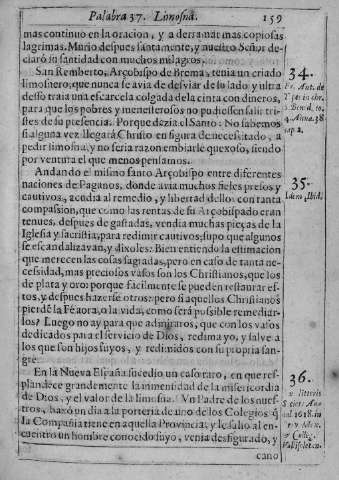 Palabra 37. Limosna. 159
mas continuo en la oracion, y a derramar mas copiosas
lagrimas. Murio despues santamente, y nuestro Señor de-
claró su santidad con muchos milagros.
San Remberto, Arçobispo de Brema, tenia un criado
limosnero, que nunca se avia de desviar de su lado, y ultra
desso traia una escarcela colgada de la cinta con dineros,
para que los pobres y menesterosos no pudiessen salir tri-
stes de su presencia. Porque dezia el Santo: No sabemos
si alguna vez llegará Christo en figura de necessitado, a
pedir limosna, y no seria razon embiarle quexoso, siendo
por ventura el que menos pensamos.
34.
Ex. Ant. de
Andando el mismo santo Arçobispo entre diferentes
naciones de Paganos, donde avia muchos fieles presos y
cautivos, atendia al remedio, y libertad dellos con tanta
compassion, que como las rentas de su Arçobispado eran
tenues, despues de gastadas, vendia muchas pieças de la
Iglesia y sacristia, para redimir cautivos; supo que algunos
se escandalizavan, y dixoles: Bien entiendo la estimacion
que merecen las cosas sagradas, pero en caso de tanta ne-
cessidad, mas preciosos vasos son los Christianos, que los
de plata y oro: porque facilmente se pueden restaurar es-
tos, y despues hazerse otros: pero si aquellos Christianos
pierdẽ la Fè aora, o la vida, como será possible remediar-
los? Luego no ay para que admiraros, que con los vasos
dedicados para el servicio de Dios, redima yo, y salve a
los que son hijos suyos, y redimidos con su propria san-
gre.
35.
Idem, Ibid.
En la Nueva España sucedio un caso raro, en que res-
plandece grandemente la inmensidad de la misericordia
de Dios, y el valor de la limosna: Un Padre de los nues-
tros, baxó un dia a la porteria de uno de los Colegios q̃
la Compañia tiene en aquella Provincia; y le salio al en-
cuentro un hombre conocido suyo, venia desfigurado, y
36.
litteris
Societ. An-
1618. in
Colleg.
cano